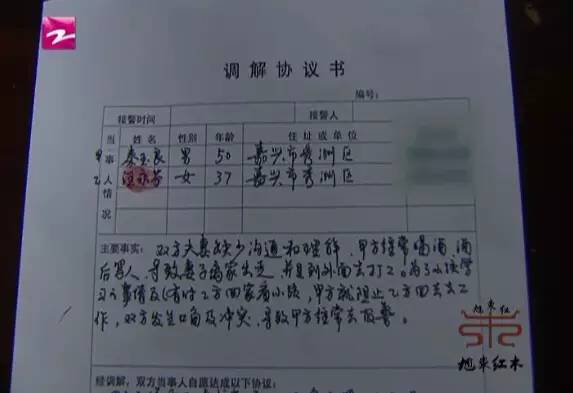 调解协议书
编号：
接警时间 接警人
当事人情况
姓名 性别 年龄 住址或单位
甲 秦玉良 男 50 嘉兴市秀洲区
乙 女 37 嘉兴市秀洲区
主要事实： 双方夫妻缺少沟通和理解，甲方经常喝酒，酒
后骂人，导致妻子离家出走，并且到外面去打工。为了小孩学
习 事情 有时乙方回家看小孩，甲方就阻止乙方回去工
作，双方发生口角及冲突，导致甲方经常去报警。
经调解，双方当事人自愿达成以下协议：
旭東红
旭東红木